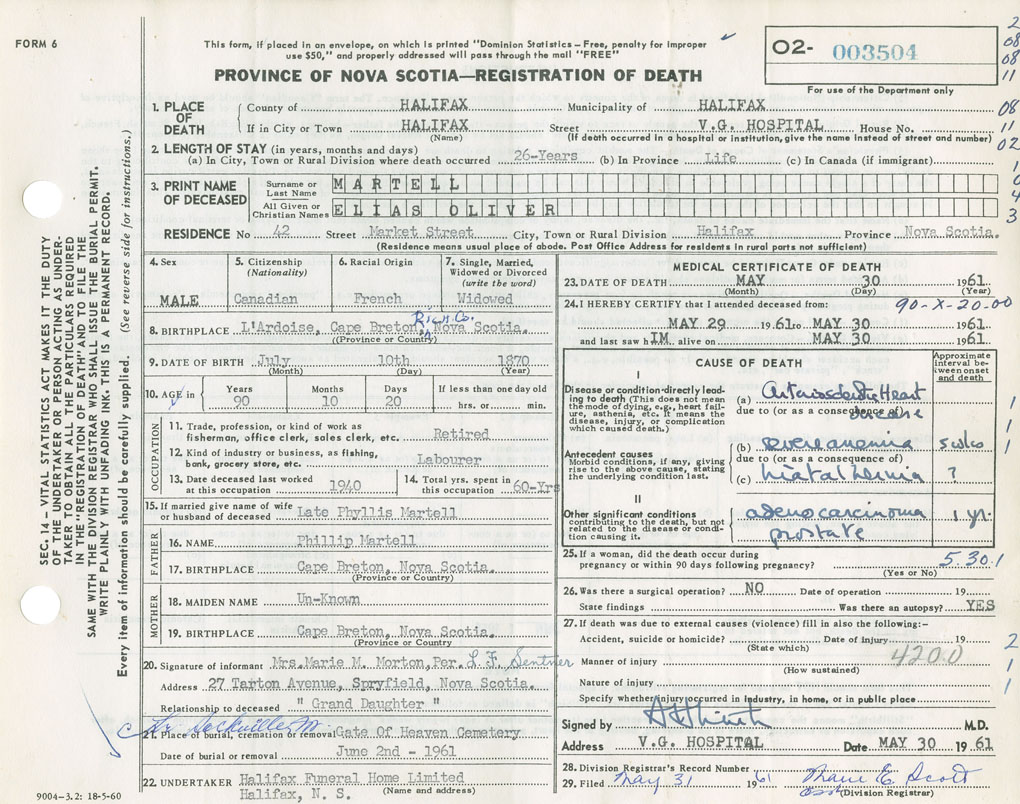 FORM 6
This form, if placed in an envelope, on which is printed "Dominion Statistics – Free, penalty for improper
use $50," and properly addressed will pass through the mail "FREE"
O2- 003504
For use of the Department only
PROVINCE OF NOVA SCOTIA—REGISTRATION OF DEATH
2
08
08
11
08
11
02
1
0
4
3
1. PLACE OF DEATH
County of HALIFAX Municipality of HALIFAX
If in City or Town HALIFAX Street V.G. HOSPITAL House No.
(Name) (If death occurred in a hospital or institution, give name instead of street and number)
2. LENGTH OF STAY (in years, months and days)
(a) In City, Town or Rural Division where death occurred 26-Years (b) In Province Life (c) In Canada (if immigrant)
3. PRINT NAME OF DECEASED
Surname or Last Name MARTELL
All Given or Christian Names ELIAS OLIVER
RESIDENCE No 42 Street Market Street City, Town or Rural Division Halifax Province Nova Scotia.
(Residence means usual place of abode. Post Office Address for residents in rural parts not sufficient)
SEC. 14 – VITAL STATISTICS ACT MAKES IT THE DUTY
OF THE UNDERTAKER OR PERSON ACTING AS UNDER-
TAKER TO OBTAIN ALL THE PARTICULARS REQUIRED
IN THE "REGISTRATION OF DEATH" AND TO FILE THE
SAME WITH THE DIVISION REGISTRAR WHO SHALL ISSUE THE BURIAL PERMIT.
WRITE PLAINLY WITH UNFADING INK. THIS IS A PERMANENT RECORD.
Every item of information should be carefully supplied. (See reverse side for instructions.)
4. Sex
MALE
5. Citizenship
(Nationality)
Canadian
6. Racial Origin
French
7. Single, Married,
Widowed or Divorced
(write the word)
Widowed
8. BIRTHPLACE L'Ardoise, Cape Breton, Rich. Co. Nova Scotia.
(Province or County)
9. DATE OF BIRTH July 10th 1870
(Month) (Day) (Year)
10. AGE in
Years Months Days If less than one day old
90 10 20 hrs. or min.
OCCUPATION
11. Trade, profession, or kind of work as
fisherman, office clerk, sales clerk, etc. Retired
12. Kind of industry or business, as fishing,
bank, grocery store, etc. Labourer
13. Date deceased last worked
at this occupation 1940
14. Total yrs. spent in
this occupation 60-Yrs
15. If married give name of wife
or husband of deceased Late Phyllis Martell
FATHER
16. NAME Phillip Martell
17. BIRTHPLACE Cape Breton, Nova Scotia.
(Province or Country)
MOTHER
18. MAIDEN NAME Un-Known
19. BIRTHPLACE Cape Breton, Nova Scotia.
(Province or Country)
20. Signature of informant Mrs. Marie M. Morton, Per. L F. Sentner
Address 27 Tarton Avenue, Spryfield, Nova Scotia.
Relationship to deceased " Grand Daughter "
Sackville
21. Place of burial, cremation or removal Gate Of Heaven Cemetery
Date of burial or removal June 2nd – 1961
22. UNDERTAKER Halifax Funeral Home Limited
Halifax, N. S. (Name and address)
9004-3.2: 18-5-60
MEDICAL CERTIFICATE OF DEATH
23. DATE OF DEATH MAY 30 1961
(Month) (Day) (Year)
24. I HEREBY CERTIFY that I attended deceased from: 90-X-20-00
MAY 29 1961 to MAY 30 1961
and last saw hIM alive on MAY 30 1961
CAUSE OF DEATH
Approximate interval between onset and death
I
Disease or condition directly lead-
ing to death (This does not mean
the mode of dying, e.g., heart fail-
ure, asthenia, etc. It means the
disease, injury, or complication
which caused death.)
(a) Arteriosclerotic Heart
disease
due to (or as a consequence of)
Antecedent causes
Morbid conditions, if any, giving
rise to the above cause, stating
the underlying condition last.
(b) severe anemia 5 wks
due to (or as a consequence of)
(c) hiatal hernia ?
II
Other significant conditions
contributing to the death, but not
related to the disease or condi-
tion causing it.
adenocarcinoma 1 yr.
prostate
1
1
1
1
25. If a woman, did the death occur during
pregnancy or within 90 days following pregnancy? 5.30.1
(Yes or No)
26. Was there a surgical operation? NO Date of operation 19
State findings Was there an autopsy? YES
27. If death was due to external causes (violence) fill in also the following:–
Accident, suicide or homicide? Date of injury 19
(State which)
4200
Manner of injury
(How sustained)
Nature of injury
Specify whether injury occurred in industry, in home, or in public place
2
1
1
Signed by M.D.
Address V.G. HOSPITAL Date MAY 30 1961
28. Division Registrar's Record Number
29. Filed May 31 1961 E. Scott
(Division Registrar)